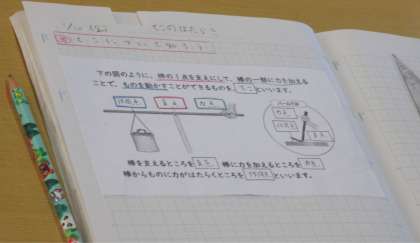 てこのはたらき
下の図のように、棒の1点を支えにして、棒の一部に力を加える
ことで、ものを動かすことができるものを てこ といいます。
作用点 支点 力点
バールの例
力点
作用点
支点
棒を支えるところを 支点 棒に力を加えるところを 力点
棒からものに力がはたらくところを 作用点 といいます。